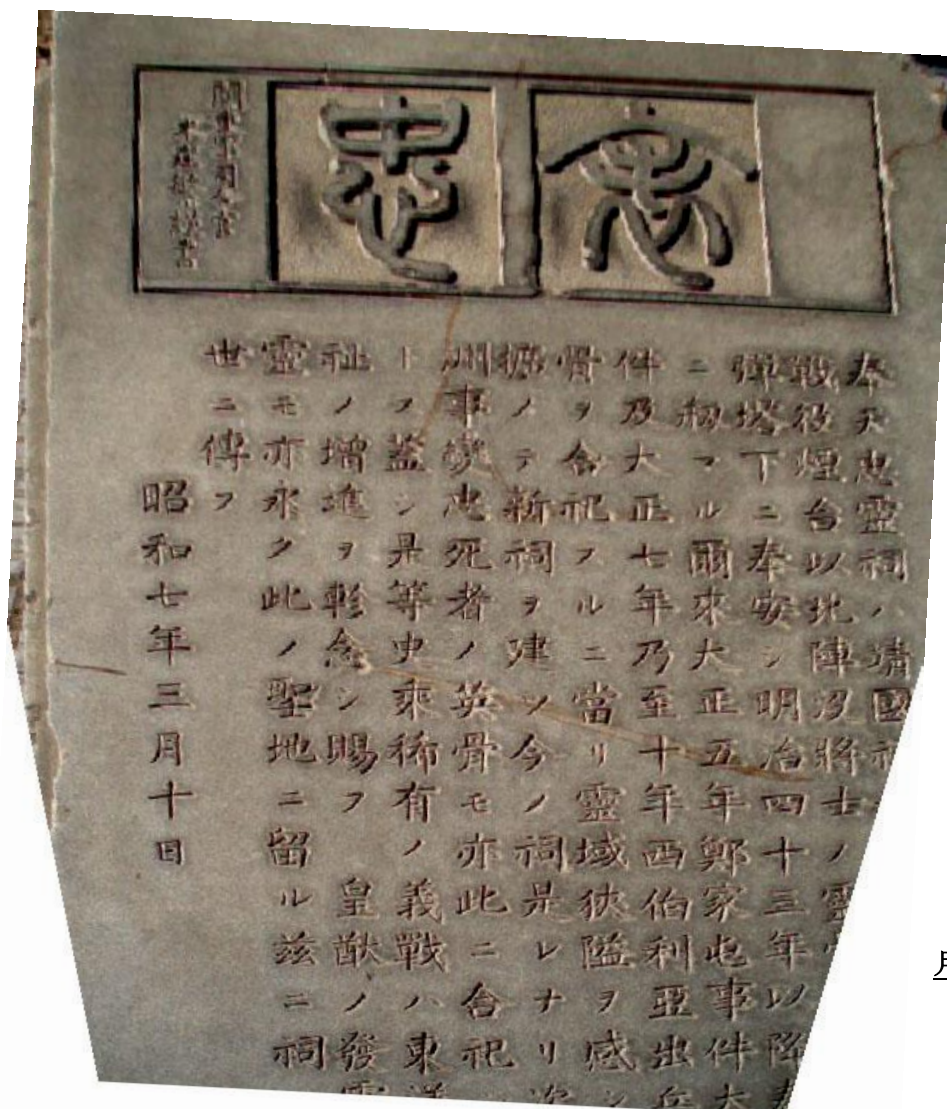 表忠
關東軍司令官
本庄繁謹書
奉天忠靈祠ハ靖國神
戰役煙台以北陣没將士ノ靈
彈塔下ニ奉安シ明治四十三年以降
ニ刱マル爾來大正五年鄭家屯事件大
件及大正七年乃至十年西伯利亞出兵
骨ヲ合祀スルニ當リ靈域狹隘ヲ感シ
擴メテ新祠ヲ建ツ今ノ祠是レナリ次
洲事變忠死者ノ英骨モ亦此ニ合祀
トス蓋シ是等史乘稀有ノ義戰ハ東洋
祉ノ增進ヲ軫念シ賜フ 皇猷ノ發
靈モ亦永ク此ノ聖地ニ留ル茲ニ祠
世ニ傳フ
昭和七年三月十日